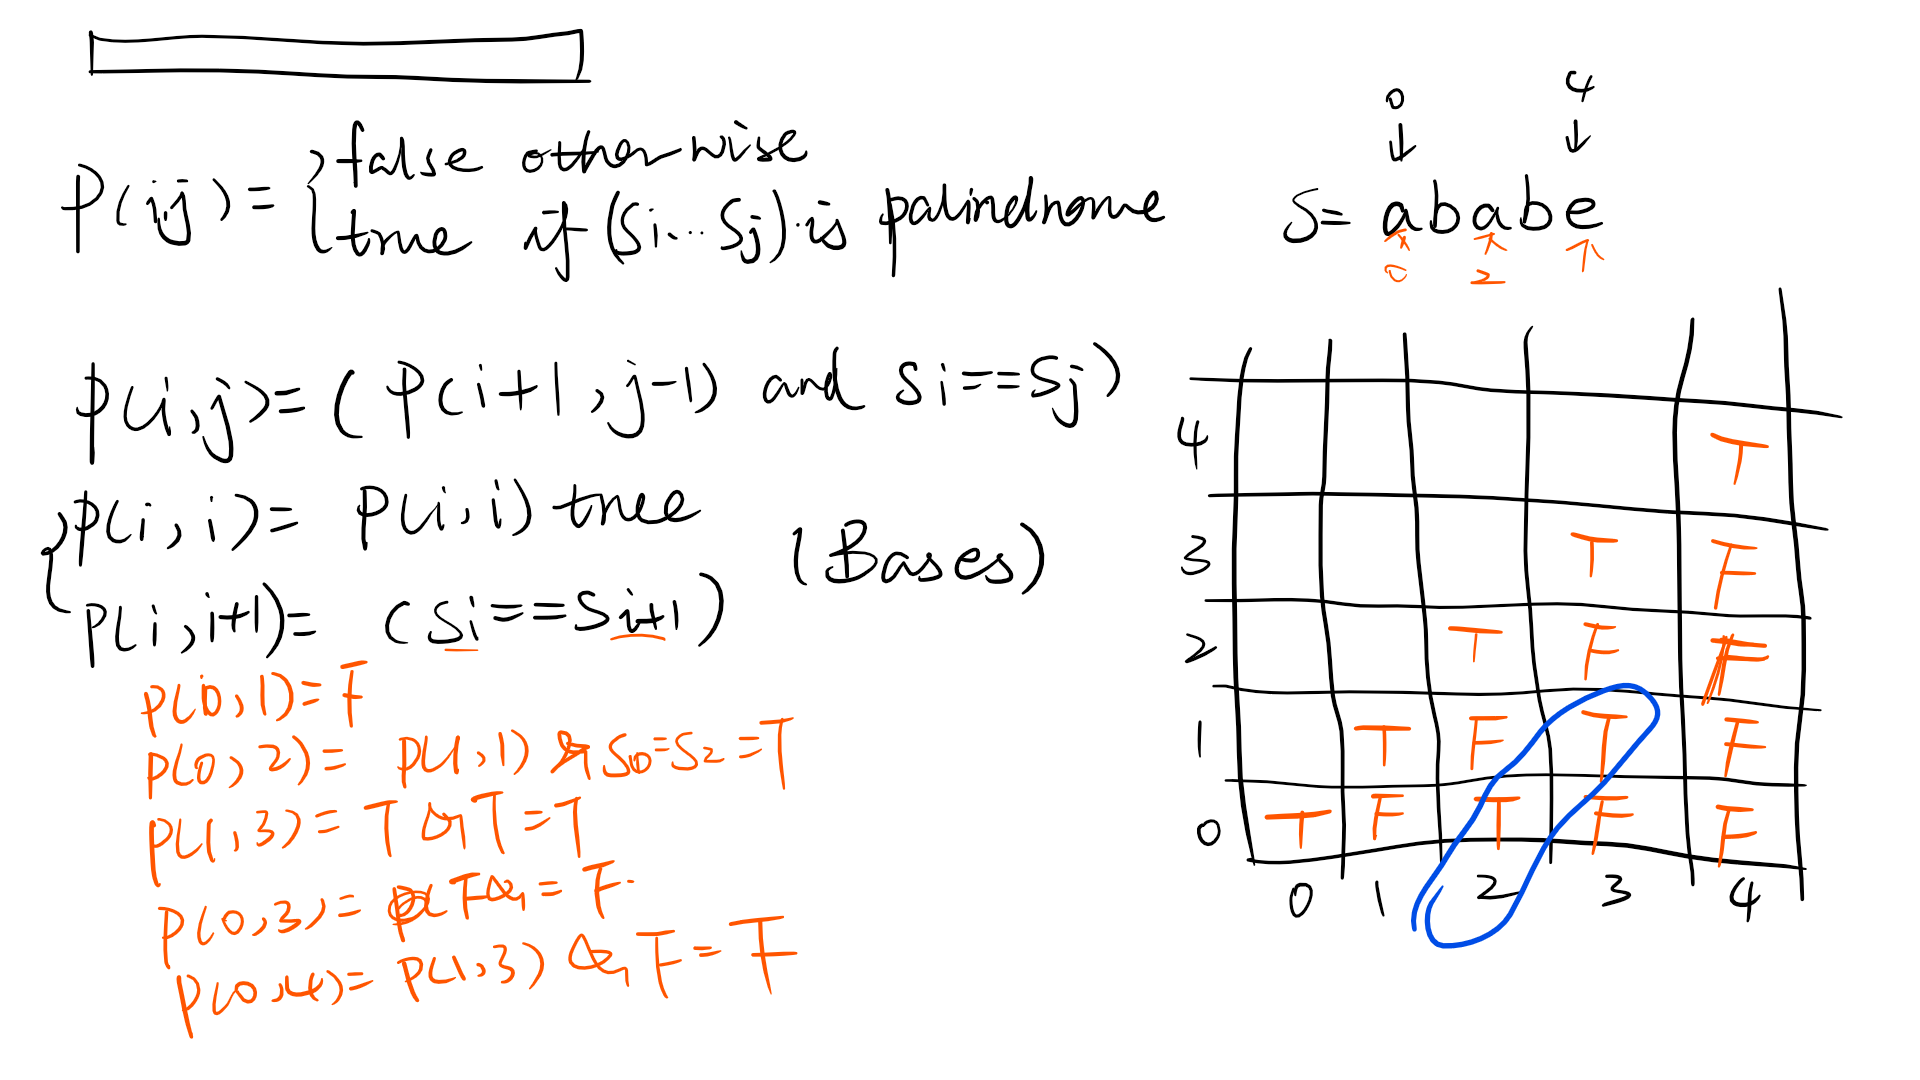 P(i,j) = { false otherwise
true if (Si...Sj) is palindrome
0 4
S= ababe
0 2
P(i,j)= ( P(i+1,j-1) and Si==Sj)
P(i,i)= P(i,i) true
(Bases)
P(i,i+1)= (Si==Si+1)
P(0,1)=F
P(0,2)= P(1,1) & S0=S2=T
P(1,3)= T & T=T
P(0,3)= F& = F.
P(0,4)= P(1,3) & F = F
4 T
3 T F
2 T F F
1 T F T F
0 T F T F F
0 1 2 3 4